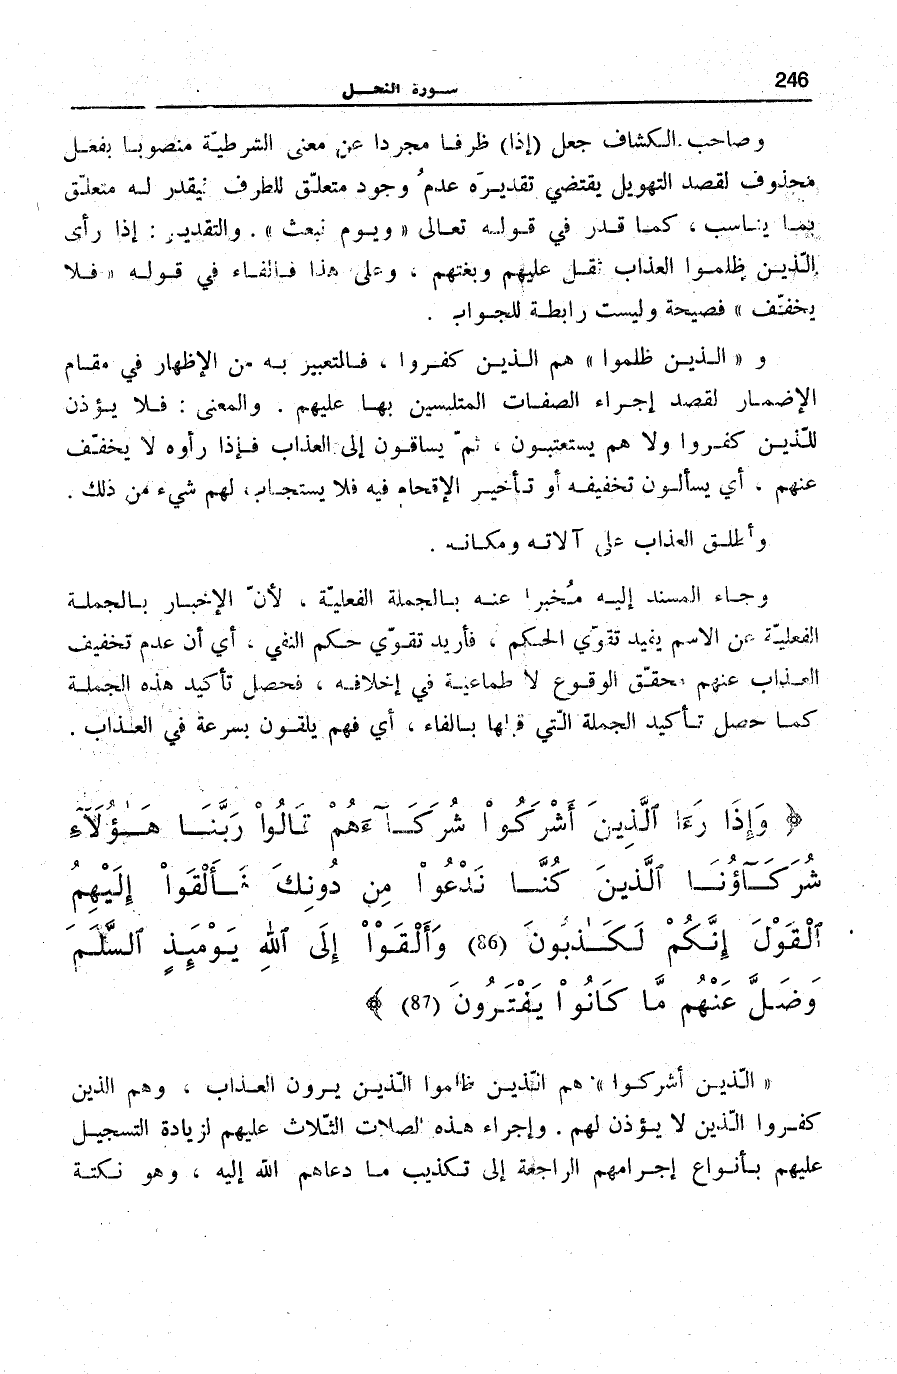 246
سورة النحل
وصاحب الكشاف جعل (إذا) ظرفا مجردا عن معنى الشرطيّة منصوبا بفعل
محذوف لقصد التهويل يقتضي تقديرَه عدمُ وجود متعلّق للظرف فيقدر له متعلّق
بما يناسب ، كما قدر في قوله تعالى « ويوم نبعث » . والتقدير : إذا رأى
الّذين ظلموا العذاب ثقل عليهم وبغتهم ، وعلى هذا فالفاء في قوله « فلا
يخفّف » فصيحة وليست رابطة للجواب .
و « الذين ظلموا » هم الذين كفروا ، فالتعبير به من الإظهار في مقام
الإضمار لقصد إجراء الصفات المتلبسين بها عليهم . والمعنى : فلا يؤذن
للّذين كفروا ولا هم يستعتبون ، ثمّ يساقون إلى العذاب فإذا رأوه لا يخفّف
عنهم ، أي يسألون تخفيفه أو تأخير الإقحام فيه فلا يستجاب لهم شيء من ذلك .
وأطلق العذاب على آلاته ومكانه .
وجاء المسند إليه مُخبرا عنه بالجملة الفعليّة ، لأنّ الإخبار بالجملة
الفعليّة عن الاسم يفيد تقوّي الحكم ، فأريد تقوّي حكم النفي ، أي أن عدم تخفيف
العذاب عنهم محقّق الوقوع لا طماعية في إخلافه ، فحصل تأكيد هذه الجملة
كما حصل تأكيد الجملة الّتي قبلها بالفاء ، أي فهم يلقون بسرعة في العذاب .
﴿ وَإِذَا رَءَا ٱلَّذِينَ أَشْرَكُواْ شُرَكَآءَهُمْ قَالُواْ رَبَّنَا هَـٰؤُلَآءِ
شُرَكَآؤُنَا ٱلَّذِينَ كُنَّا نَدْعُواْ مِن دُونِكَ فَأَلْقَوْاْ إِلَيْهِمُ
ٱلْقَوْلَ إِنَّكُمْ لَكَـٰذِبُونَ (86) وَأَلْقَوْاْ إِلَى ٱللَّهِ يَوْمَئِذٍ ٱلسَّلَمَ
وَضَلَّ عَنْهُم مَّا كَانُواْ يَفْتَرُونَ (87) ﴾
« الّذين أشركوا » هم الّذين ظلموا الّذين يرون العذاب ، وهم الذين
كفروا الّذين لا يؤذن لهم . وإجراء هذه الصلات الثّلاث عليهم لزيادة التسجيل
عليهم بأنواع إجرامهم الراجعة إلى تكذيب ما دعاهم الله إليه ، وهو نكتة